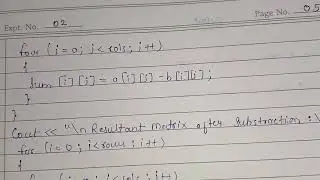 Expt. No. 02
Page No. 05
for (j = 0; j < cols; j++)
{
sum [i][j] = a[i][j] - b[i][j];
}
}
Cout << "\n Resultant Matrix after substraction :\
for (i = 0; i < rows; i++)
{
for (j = 0; j < cols; j++)